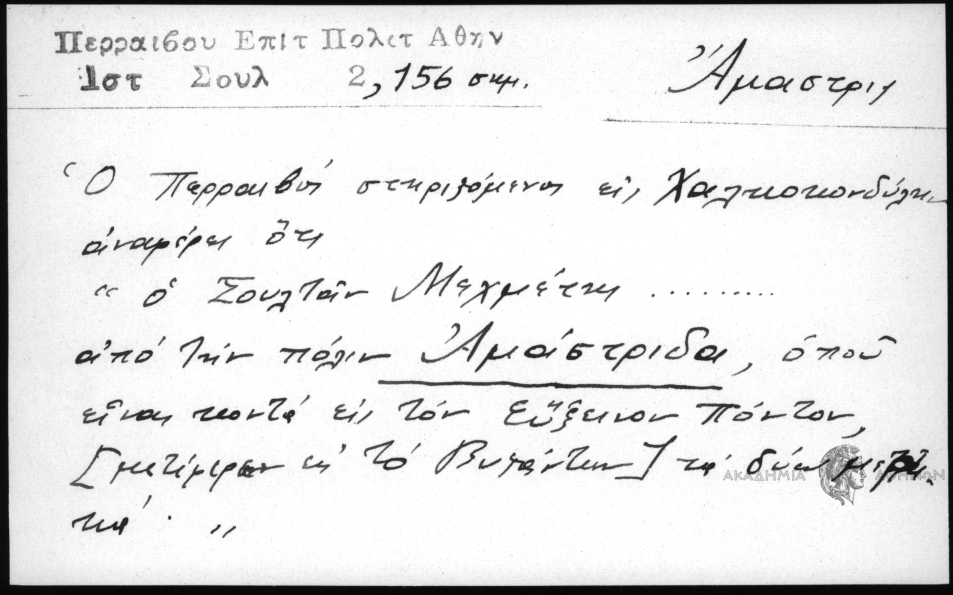 Περραιβου Επιτ Πολιτ Αθην
1στ Σουλ 2, 156 σημ.
Ἄμαστρις
Ὁ Περραιβός στηριζόμενος εἰς Χαλκοκονδύλην
ἀναφέρει ὅτι
“ ὁ Σουλτάν Μεχμέτης ..........
ἀπό τήν πόλιν Ἀμάστριδα, ὁποῦ
εἶναι κοντά εἰς τόν Εὔξεινον Πόντον,
[μετέφερεν εἰς τό Βυζάντιον] τά
τά. „
ΑΚΑΔΗΜΙΑ ΑΘΗΝΩΝ